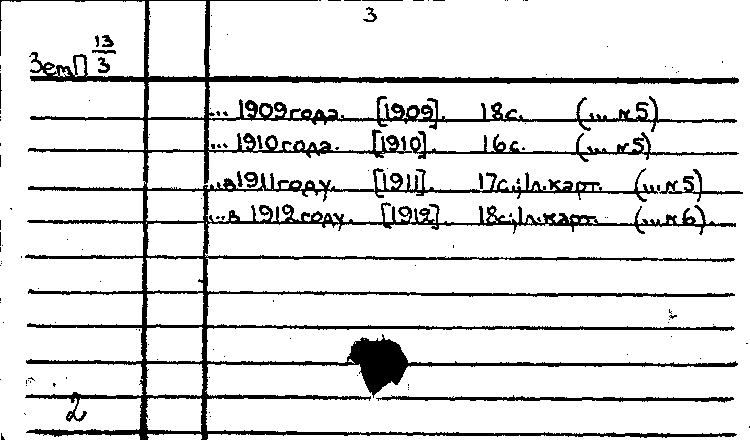 3
ЗемП 13/3
... 1909 года. [1909]. 18с. (... №5)
... 1910 года. [1910]. 16с. (... №5)
... в 1911 году. [1911]. 17с.; 1л. карт. (... №5)
... в 1912 году. [1912]. 18с.; 1л. карт. (... №6).
2